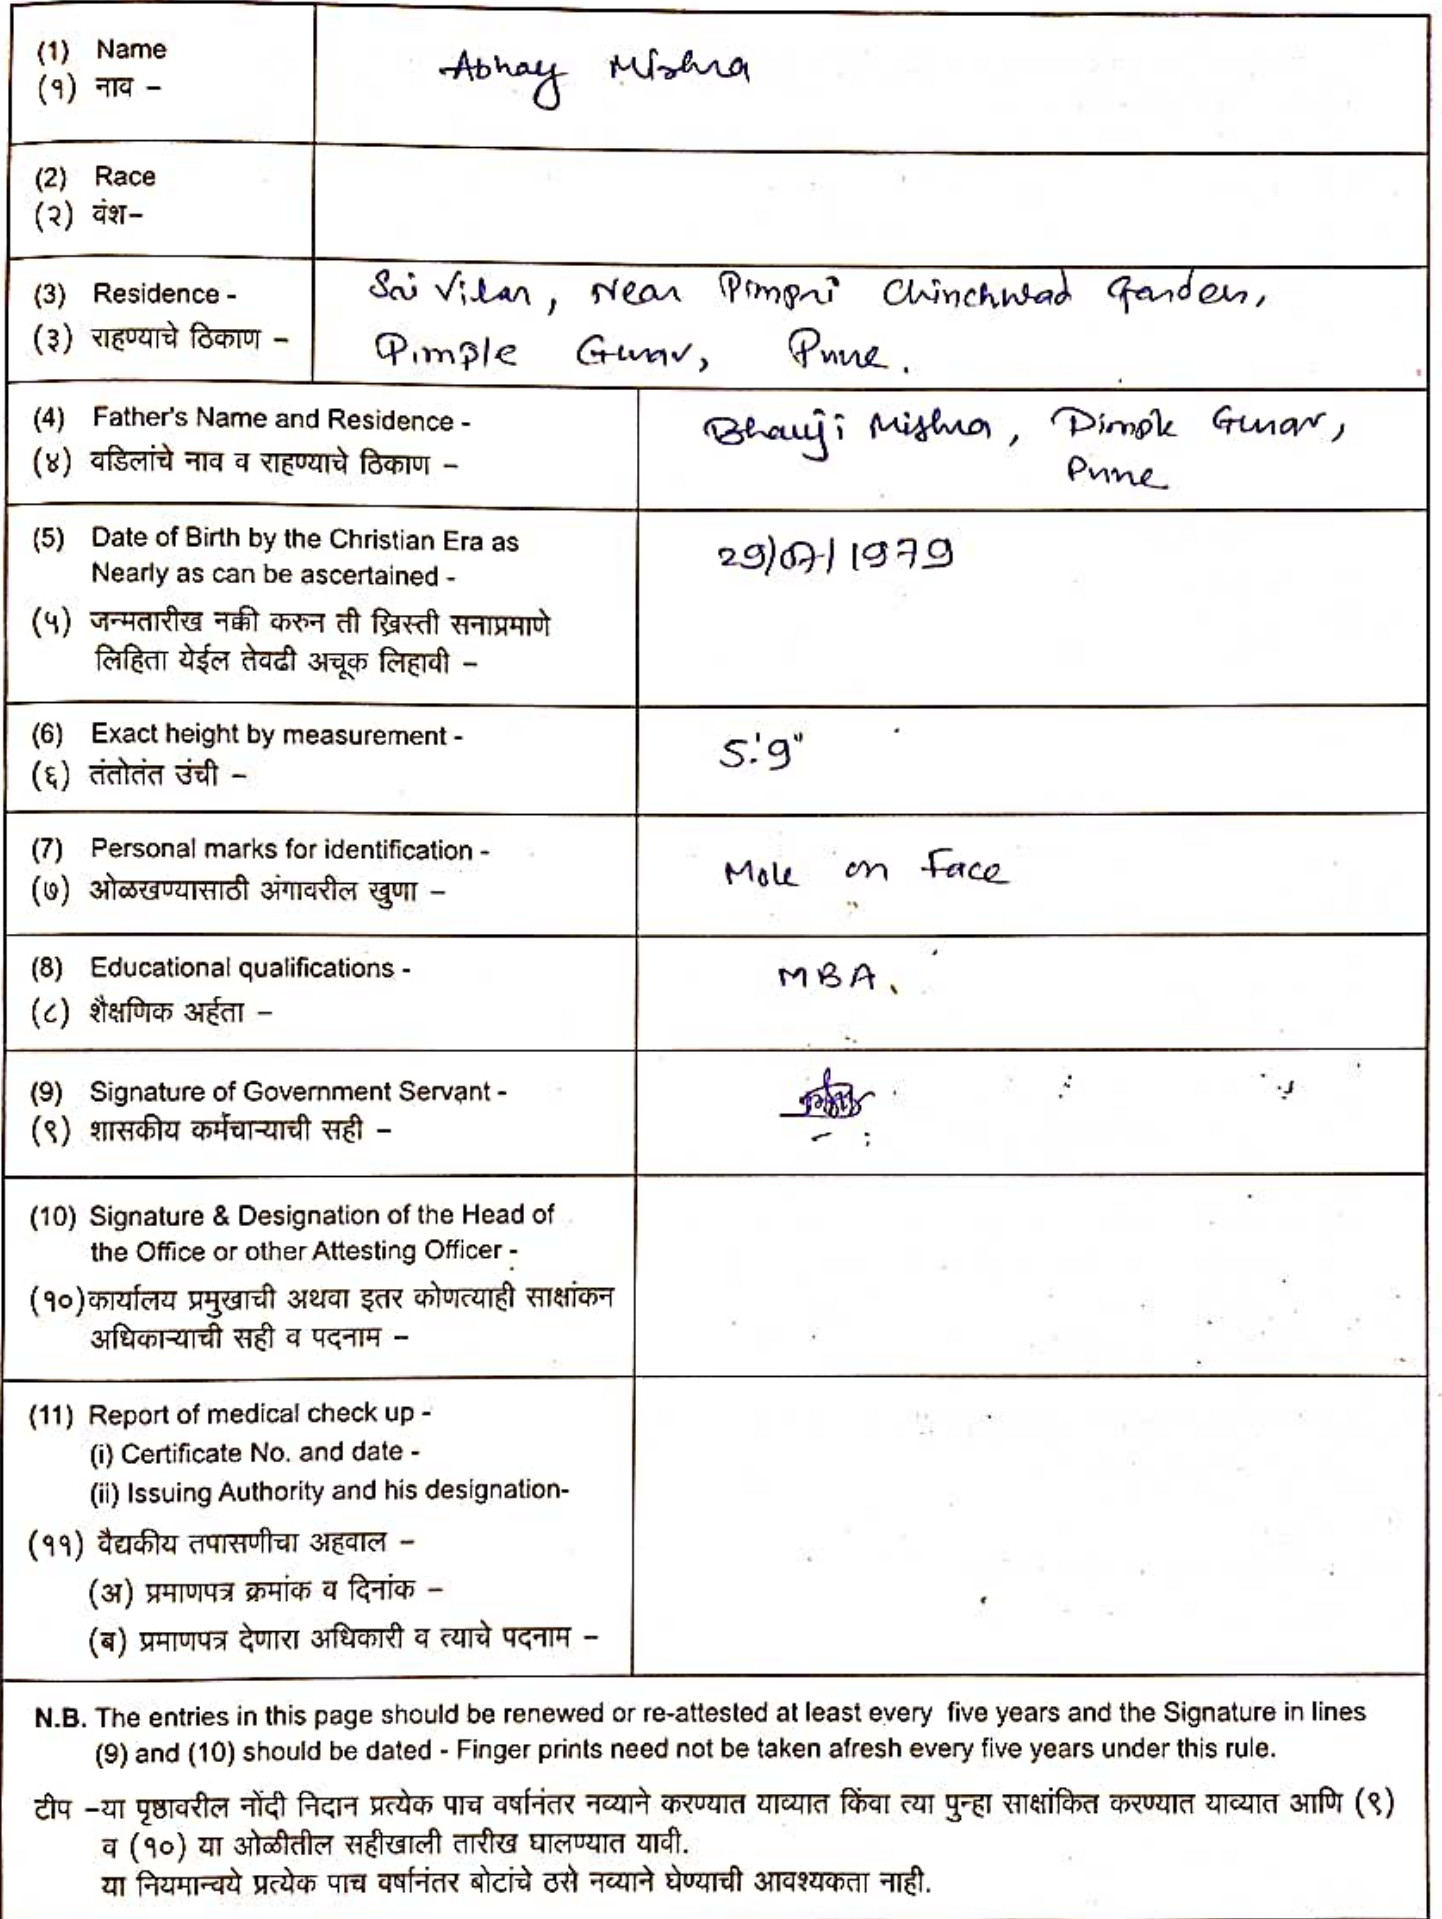 (1) Name
(१) नाव –
Abhay Mishra
(2) Race
(२) वंश–
(3) Residence -
(३) राहण्याचे ठिकाण –
Sai Vihar, Near Pimpri Chinchwad Garden,
Pimple Gurav, Pune.
(4) Father's Name and Residence -
(४) वडिलांचे नाव व राहण्याचे ठिकाण –
Mishra, Pimple Gurav,
Pune
(5) Date of Birth by the Christian Era as
Nearly as can be ascertained -
(५) जन्मतारीख नक्की करुन ती ख्रिस्ती सनाप्रमाणे
लिहिता येईल तेवढी अचूक लिहावी –
29/07/1979
(6) Exact height by measurement -
(६) तंतोतंत उंची –
5.'9"
(7) Personal marks for identification -
(७) ओळखण्यासाठी अंगावरील खुणा –
Mole on Face
(8) Educational qualifications -
(८) शैक्षणिक अर्हता –
MBA.
(9) Signature of Government Servant -
(९) शासकीय कर्मचाऱ्याची सही –
(10) Signature & Designation of the Head of
the Office or other Attesting Officer -
(१०) कार्यालय प्रमुखाची अथवा इतर कोणत्याही साक्षांकन
अधिकाऱ्याची सही व पदनाम –
(11) Report of medical check up -
(i) Certificate No. and date -
(ii) Issuing Authority and his designation-
(११) वैद्यकीय तपासणीचा अहवाल –
(अ) प्रमाणपत्र क्रमांक व दिनांक –
(ब) प्रमाणपत्र देणारा अधिकारी व त्याचे पदनाम –
N.B. The entries in this page should be renewed or re-attested at least every five years and the Signature in lines
(9) and (10) should be dated - Finger prints need not be taken afresh every five years under this rule.
टीप –या पृष्ठावरील नोंदी निदान प्रत्येक पाच वर्षानंतर नव्याने करण्यात याव्यात किंवा त्या पुन्हा साक्षांकित करण्यात याव्यात आणि (९)
व (१०) या ओळीतील सहीखाली तारीख घालण्यात यावी.
या नियमान्वये प्रत्येक पाच वर्षानंतर बोटांचे ठसे नव्याने घेण्याची आवश्यकता नाही.